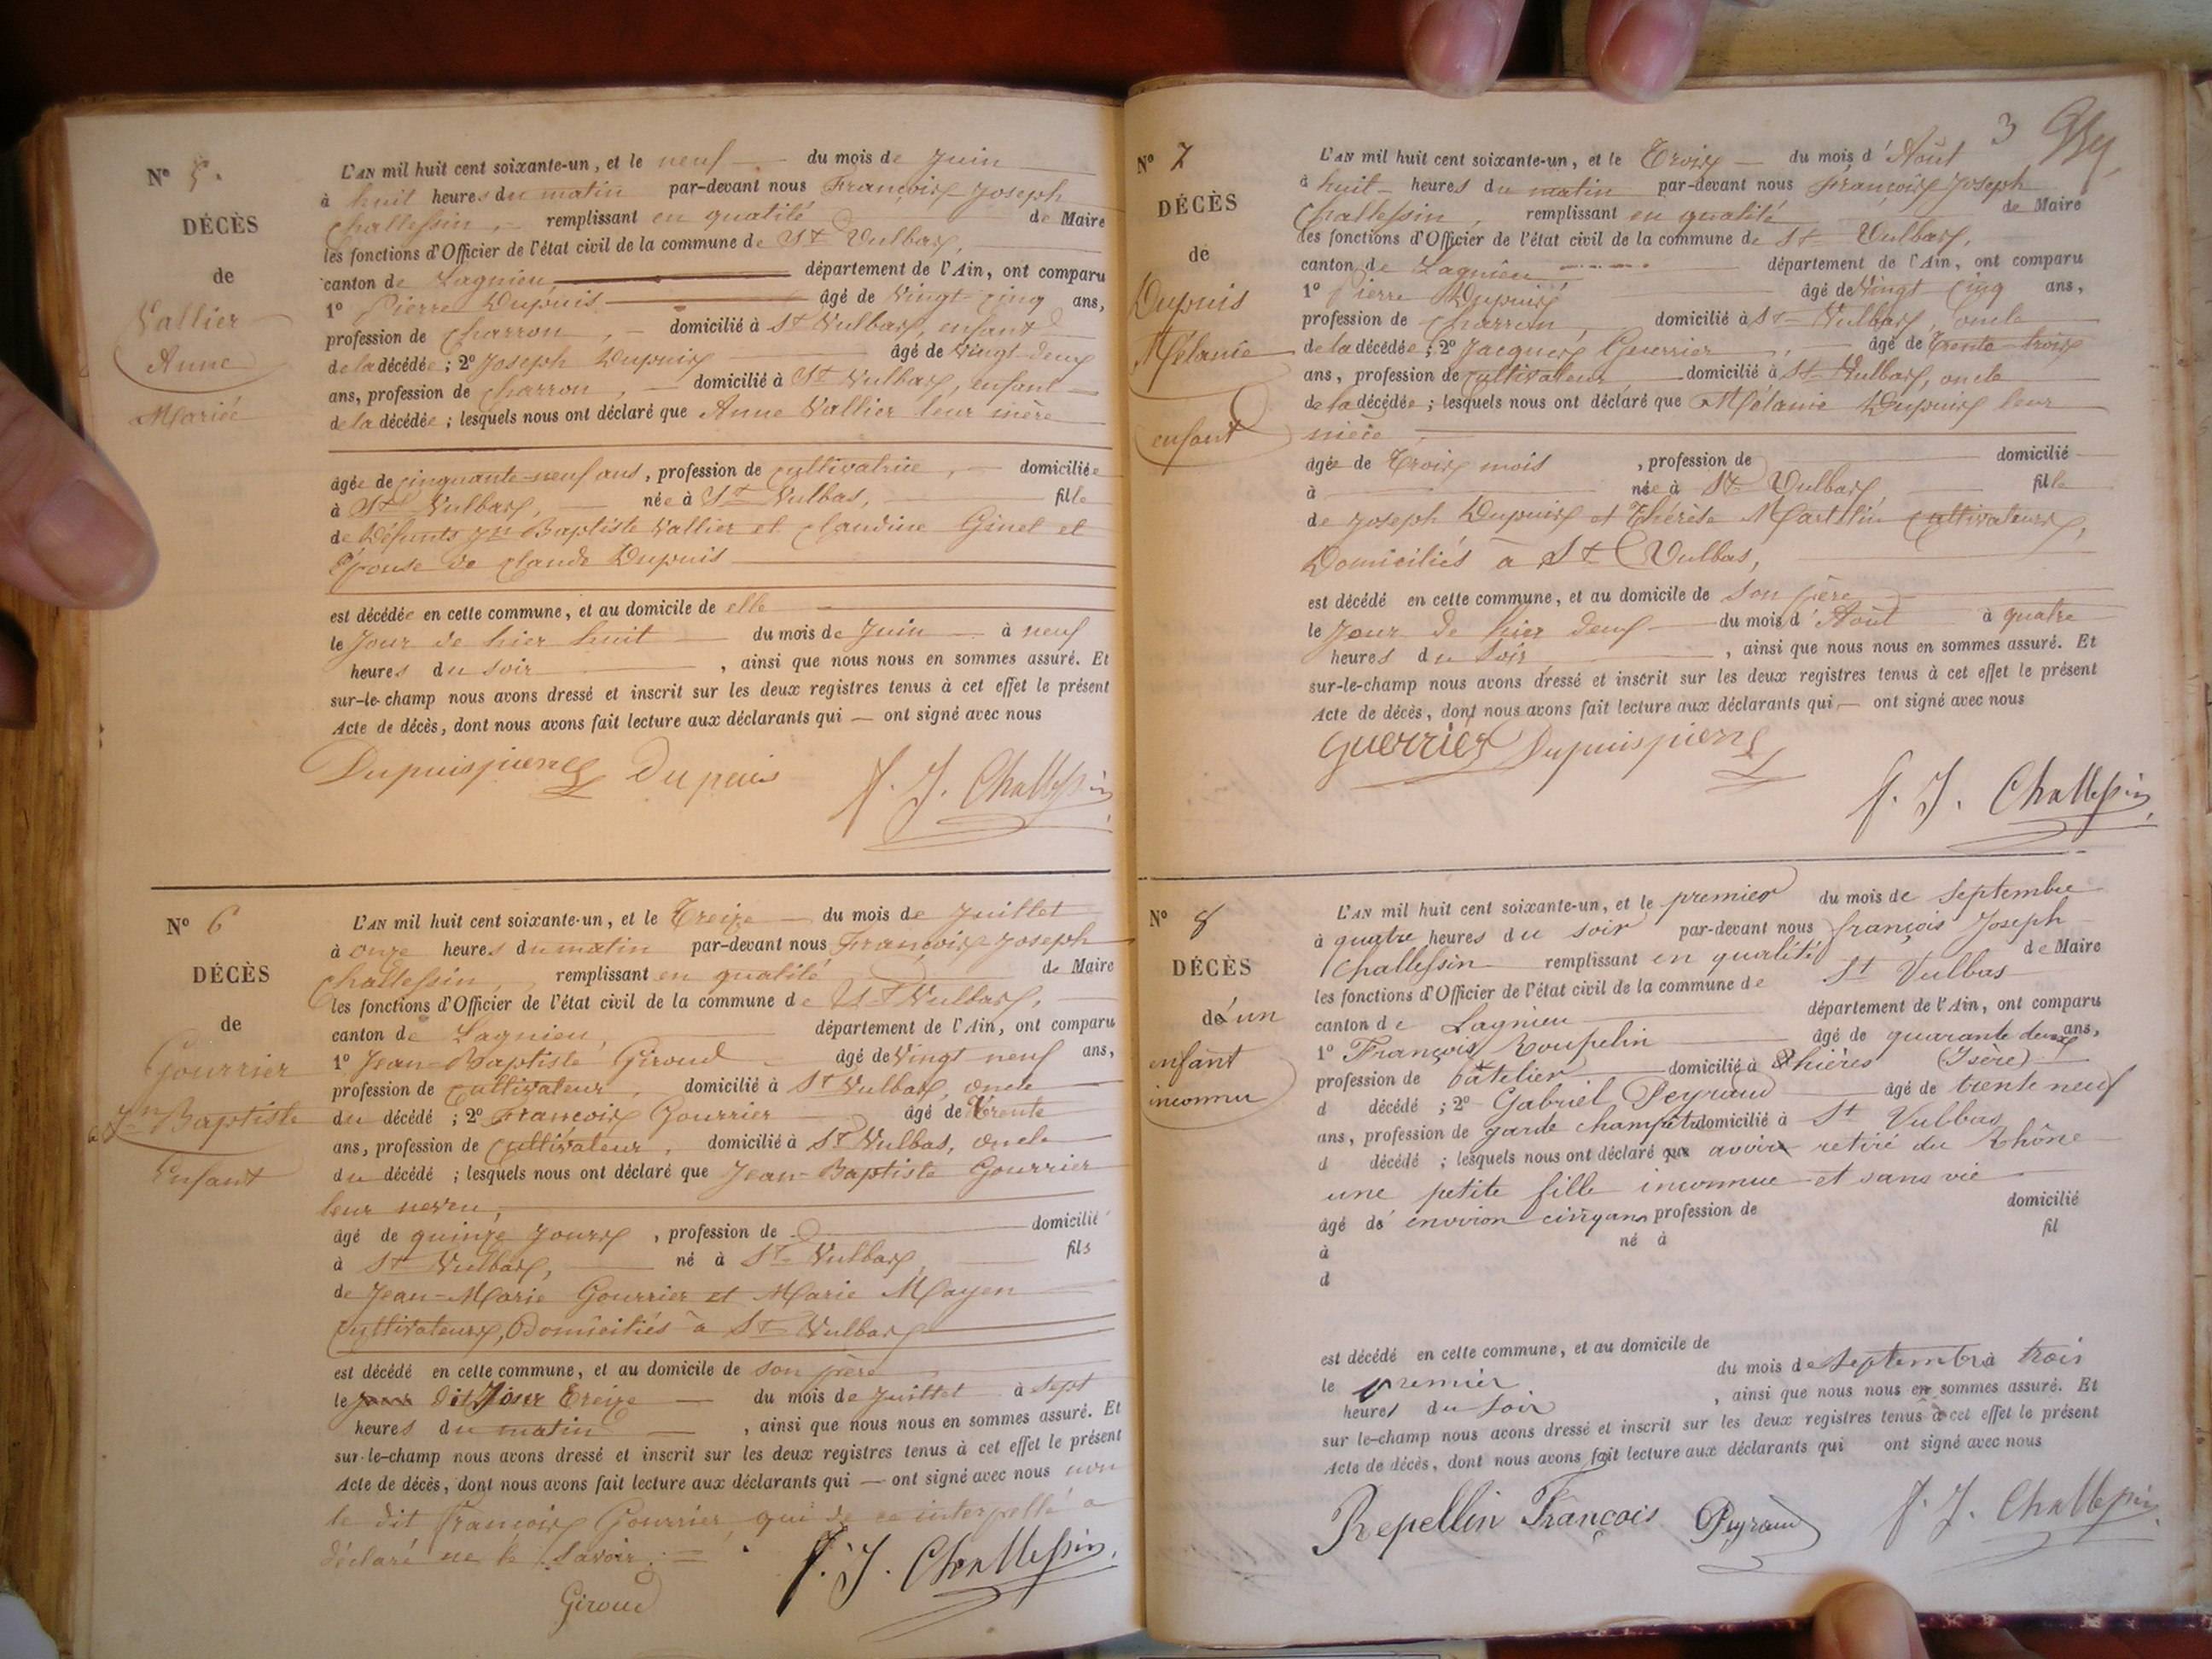 N° 5.
DÉCÈS
de
Vallier
Anne
Mariée
L'AN mil huit cent soixante-un, et le neuf du mois de Juin
à huit heures du matin par-devant nous François Joseph
Challessin, remplissant en qualité de Maire
les fonctions d'Officier de l'état civil de la commune de St Vulbas,
canton de Lagnieu, département de l'Ain, ont comparu
1° Pierre Dupuis âgé de Vingt-cinq ans,
profession de charron, domicilié à St Vulbas, enfant
de la décédée ; 2° Joseph Dupuis âgé de Vingt-deux
ans, profession de charron, domicilié à St Vulbas, enfant
de la décédée ; lesquels nous ont déclaré que Anne Vallier leur mère
âgée de cinquante-neuf ans, profession de cultivatrice, domiciliée
à St Vulbas, née à St Vulbas, fille
de Défunts Jn Baptiste Vallier et Claudine Ginet et
Épouse de Claude Dupuis
est décédée en cette commune, et au domicile de elle
le Jour de hier huit du mois de Juin à neuf
heures du soir, ainsi que nous nous en sommes assuré. Et
sur-le-champ nous avons dressé et inscrit sur les deux registres tenus à cet effet le présent
Acte de décès, dont nous avons fait lecture aux déclarants qui — ont signé avec nous
Dupuis pierre Dupuis F. J. Challessin
N° 6
DÉCÈS
de
Gourrier
Jn Baptiste
Enfant
L'AN mil huit cent soixante-un, et le Treize du mois de Juillet
à onze heures du matin par-devant nous François Joseph
Challessin, remplissant en qualité de Maire
les fonctions d'Officier de l'état civil de la commune de St Vulbas,
canton de Lagnieu, département de l'Ain, ont comparu
1° Jean-Baptiste Giroud âgé de Vingt neuf ans,
profession de cultivateur, domicilié à St Vulbas, oncle
du décédé ; 2° François Gourrier âgé de Trente
ans, profession de cultivateur, domicilié à St Vulbas, oncle
du décédé ; lesquels nous ont déclaré que Jean-Baptiste Gourrier
leur neveu,
âgé de quinze jours, profession de domicilié
à St Vulbas, né à St Vulbas, fils
de Jean-Marie Gourrier et Marie Mayen
cultivateurs, Domiciliés à St Vulbas
est décédé en cette commune, et au domicile de son père
le Dit Jour Treize du mois de Juillet à sept
heures du matin, ainsi que nous nous en sommes assuré. Et
sur-le-champ nous avons dressé et inscrit sur les deux registres tenus à cet effet le présent
Acte de décès, dont nous avons fait lecture aux déclarants qui — ont signé avec nous non
le dit François Gourrier, qui de ce interpellé a
déclaré ne le savoir.
Giroud F. J. Challessin
3
N° 7
DÉCÈS
de
Dupuis
Mélanie
enfant
L'AN mil huit cent soixante-un, et le Trois du mois d'Août
à huit heures du matin par-devant nous François Joseph
Challessin, remplissant en qualité de Maire
les fonctions d'Officier de l'état civil de la commune de St Vulbas,
canton de Lagnieu département de l'Ain, ont comparu
1° Pierre Dupuis âgé de Vingt-cinq ans,
profession de charron, domicilié à St Vulbas, oncle
de la décédée ; 2° Jacques Guerrier, âgé de Trente-trois
ans, profession de cultivateur domicilié à St Vulbas, oncle
de la décédée ; lesquels nous ont déclaré que Mélanie Dupuis leur
nièce
âgée de Trois mois, profession de domicilié
à née à St Vulbas, fille
de Joseph Dupuis et Thérèse Martelin cultivateurs,
Domiciliés à St Vulbas,
est décédé en cette commune, et au domicile de son père
le Jour de hier deux du mois d'Août à quatre
heures du soir, ainsi que nous nous en sommes assuré. Et
sur-le-champ nous avons dressé et inscrit sur les deux registres tenus à cet effet le présent
Acte de décès, dont nous avons fait lecture aux déclarants qui — ont signé avec nous
Guerrier Dupuis pierre
F. J. Challessin
N° 8
DÉCÈS
de d'un
enfant
inconnu
L'AN mil huit cent soixante-un, et le premier du mois de Septembre
à quatre heures du soir par-devant nous françois Joseph
Challessin remplissant en qualité de Maire
les fonctions d'Officier de l'état civil de la commune de St Vulbas
canton de Lagnieu département de l'Ain, ont comparu
1° François Roupelin âgé de quarante deux ans,
profession de batelier domicilié à hières (Isère)
d décédé ; 2° Gabriel Peyraud âgé de trente neuf
ans, profession de garde champêtre domicilié à St Vulbas
d décédé ; lesquels nous ont déclaré avoir retiré du Rhône
une petite fille inconnue et sans vie
âgé de environ cinq ans profession de domicilié
à né à fil
d
est décédé en cette commune, et au domicile de
le premier du mois de septembre à trois
heures du soir, ainsi que nous nous en sommes assuré. Et
sur-le-champ nous avons dressé et inscrit sur les deux registres tenus à cet effet le présent
Acte de décès, dont nous avons fait lecture aux déclarants qui ont signé avec nous
Repellin François Peyraud F. J. Challessin